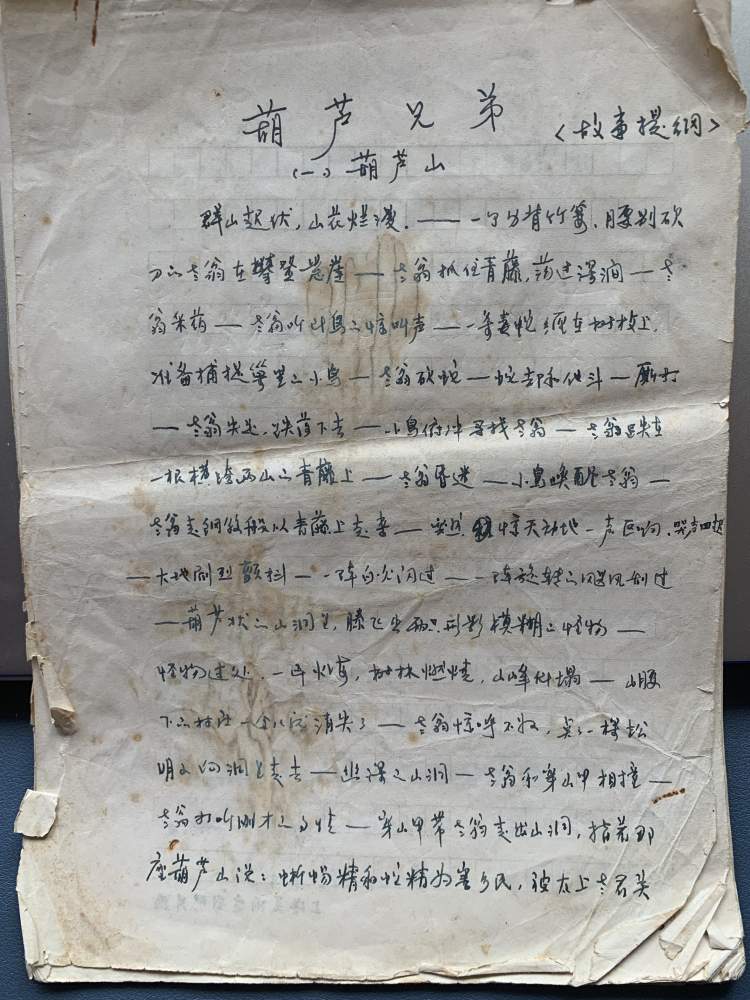 葫芦兄弟 <故事提纲>
(一) 葫芦山
群山起伏，山花烂漫。—— 一个身背竹篓，腰别砍
刀的老翁在攀登悬崖 — 老翁抓住青藤，荡过深涧 — 老
翁采药 — 老翁听到鸟的惊叫声 — 一条毒蛇缠在树枝上，
准备捕捉窝里的小鸟 — 老翁砍蛇 — 蛇却和他斗 — 厮打
— 老翁失足，跌落下去 — 小鸟俯冲寻找老翁 — 老翁跌在
一根横跨两山的青藤上 — 老翁昏迷 — 小鸟唤醒老翁 —
老翁走钢丝般从青藤上走来 — 突然，惊天动地一声巨响，哭声四起
— 大地剧烈颤抖 — 一阵白光闪过 — 一阵旋转的飓风刮过
— 葫芦状的山洞里，腾飞出两只形影模糊的怪物 —
怪物过处，一片火海，树林燃烧，山峰倒塌 — 山腰
下的村庄一个个消失了 — 老翁惊呼不好，点了一根松
明子向洞里走去 — 幽深的山洞 — 老翁和穿山甲相撞 —
老翁打听刚才的事情 — 穿山甲带老翁走出山洞，指着那
座葫芦山说：蜥蜴精和蛇精为害乡民，被太上老君关